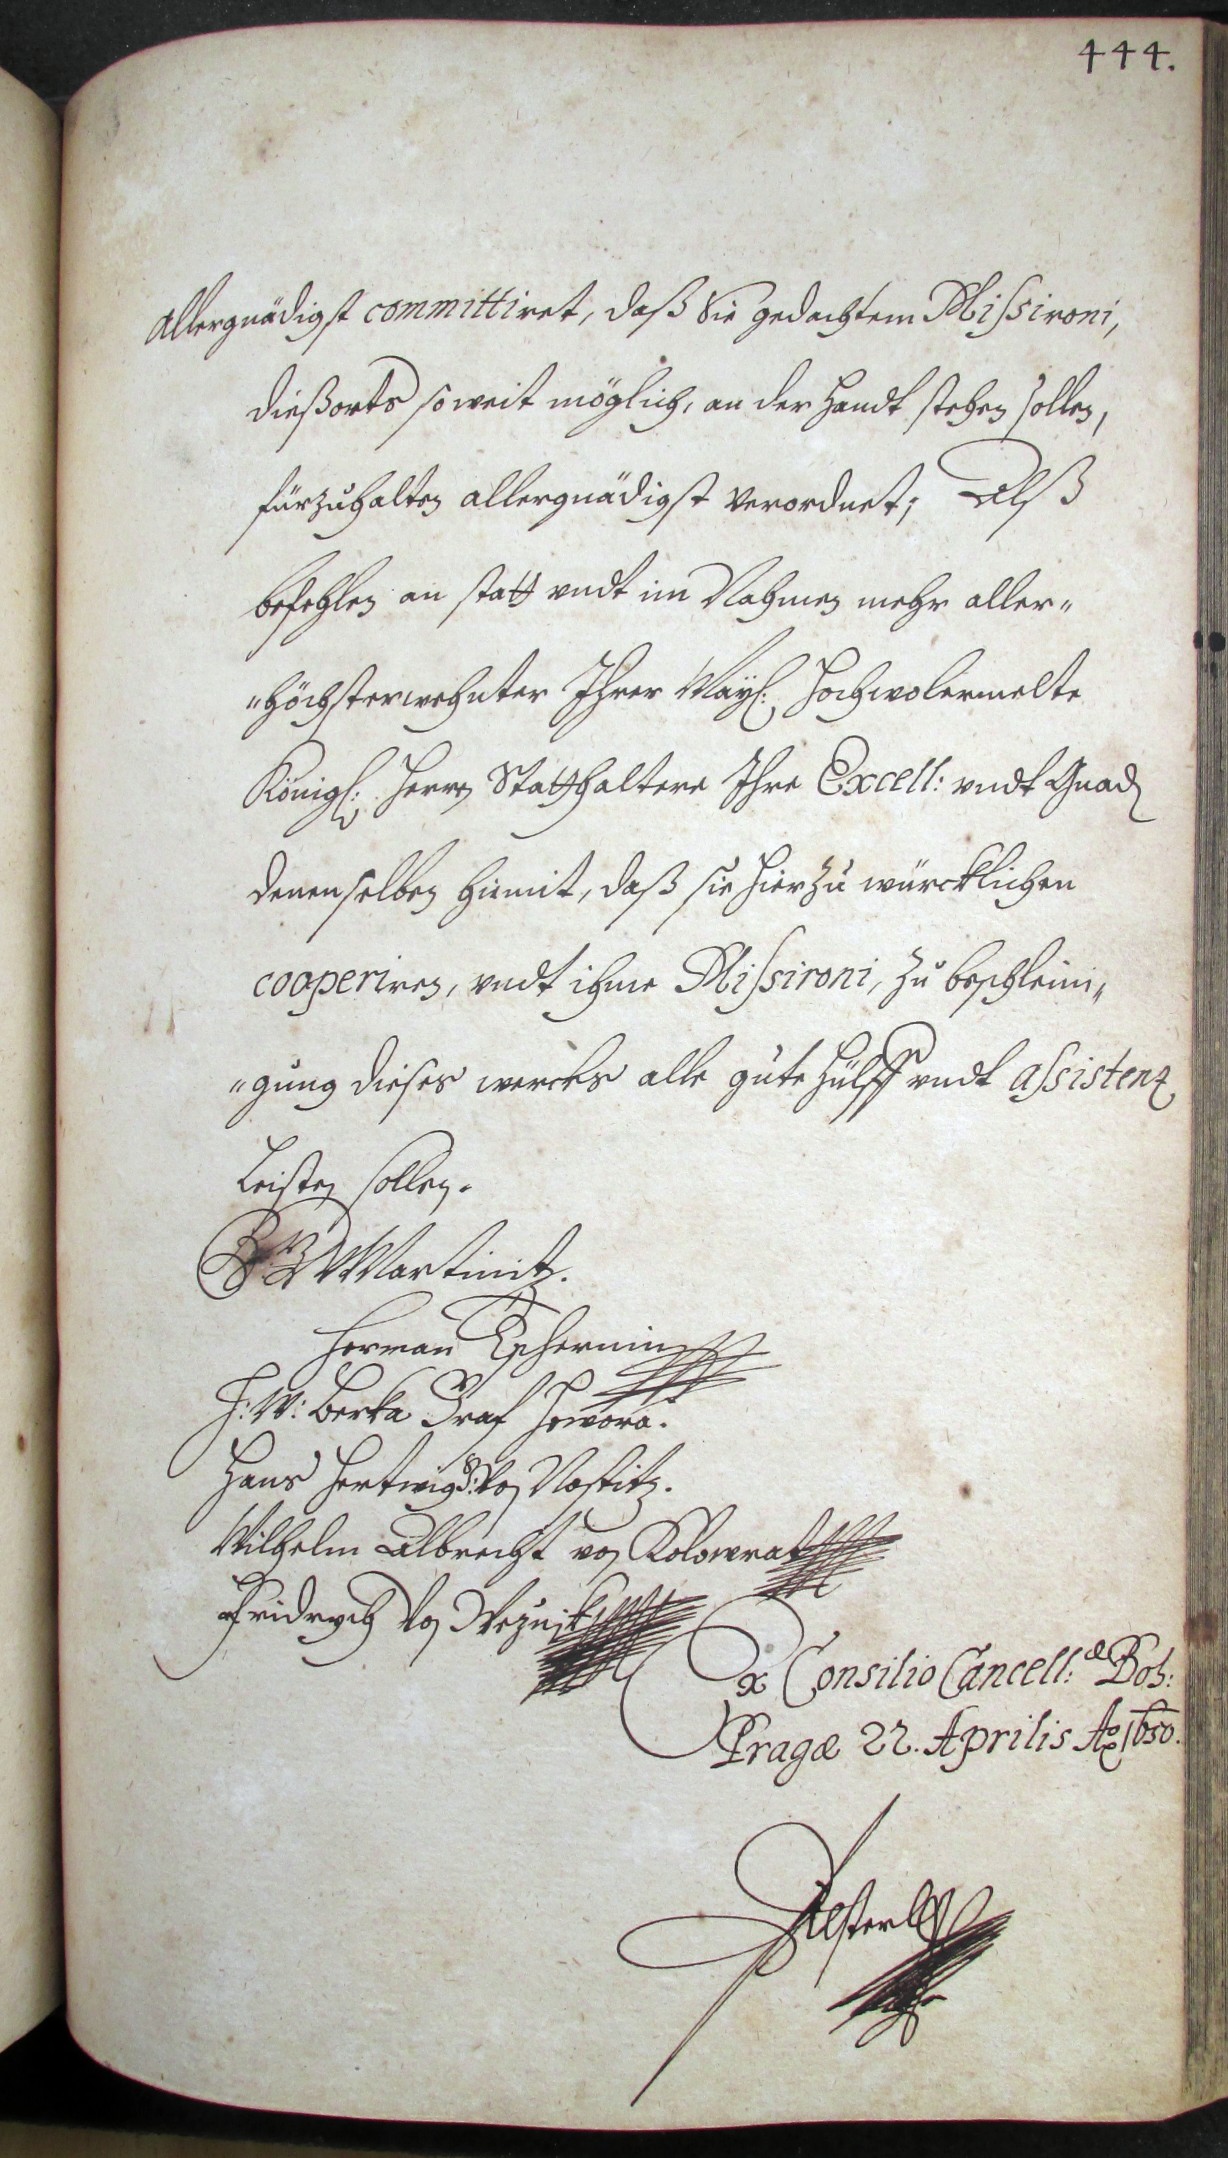 444.
allergnädigst committiret, daß Sie gedachtem Mißironi,
dießorts soweit möglich, an der Handt stehen sollen,
fürzuhalten allergnädigst verordnet; Alß
befehlen an statt vndt im Nahmen mehr aller„
„höchsterwehnter Ihrer Mayl: Hochwolermelte
Königl: Herrn Statthaltere Ihre Excell: vndt Gnad
denenselben hiemit, daß sie hierzu würcklichen
cooperiren, vndt ihme Mißironi, zu beschleini„
„gung dieses wercks alle gute Hülff vndt assistenz
Leisten sollen.
Martinitz.
Herman Tschernin
F: W: Berka Graf Howora.
Hans Hertwig G: von Nostitz.
Wilhelm Albrecht von Kolowrat
Fridrych von
Ex Consilio Cancell:æ Boh:
Pragæ 22. Aprilis Aō 1650.